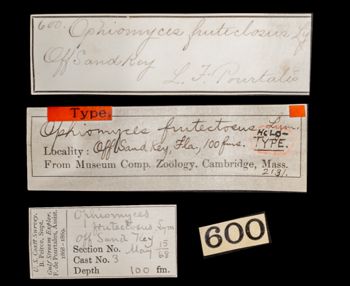 600. Ophiomyces frutectosus Ly
Off Sand Key
L. F. Pourtalès
Type.
Ophiomyces frutectosus, Lym.
HOLO-
TYPE.
Locality: Off Sand Key, Fla, 100 fms.
From Museum Comp. Zoology, Cambridge, Mass.
2131.
U. S. Coast Survey.
B. Peirce, Supt.
Gulf Stream Explor.
F. de Pourtales, Assist.
1868-1869.
Ophiomyces
frutectosus Lym
Off Sand Key
Section No. May 15
Cast No. 3 68
Depth 100 fm.
600